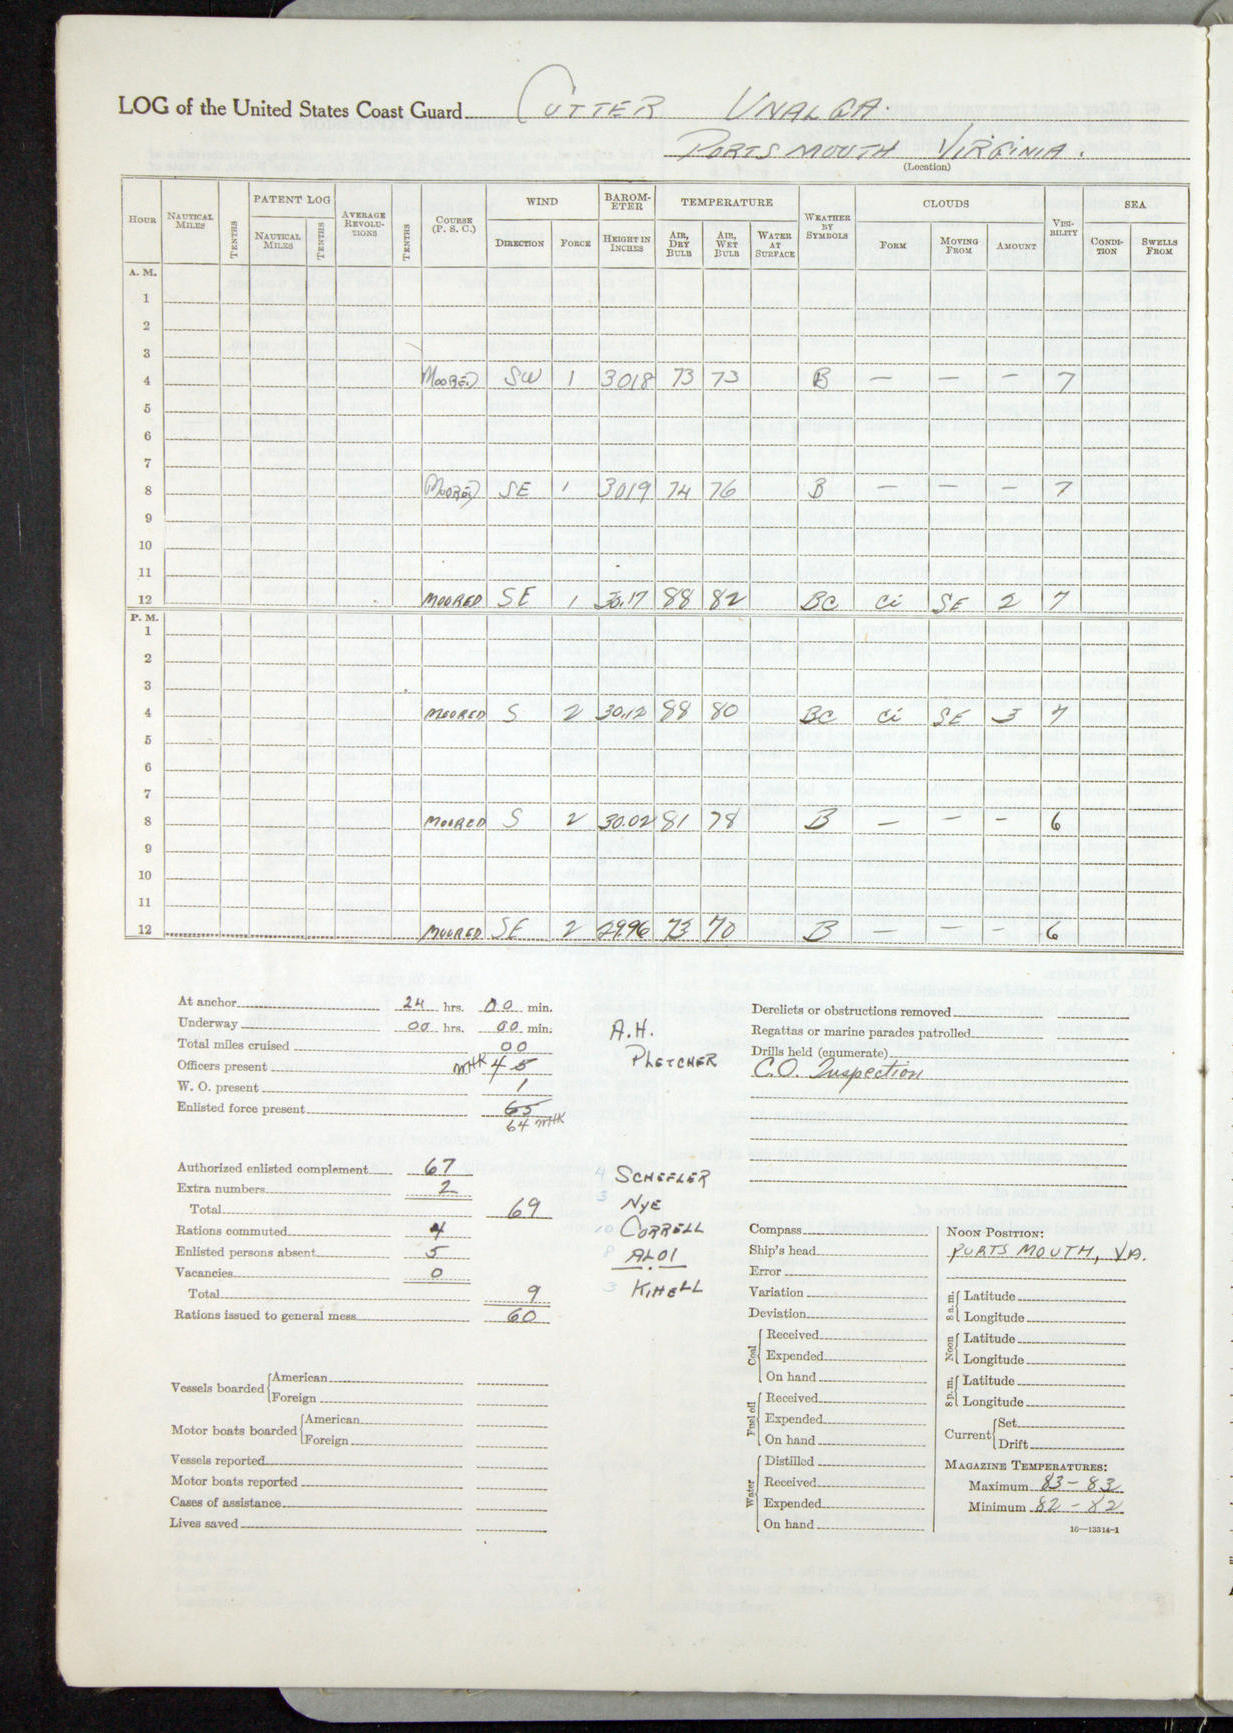 LOG of the United States Coast Guard CUTTER UNALGA.
PORTSMOUTH VIRGINIA.
(Location)
HOUR NAUTICAL MILES TENTHS PATENT LOG NAUTICAL MILES TENTHS AVERAGE REVOLUTIONS TENTHS COURSE (P. S. C.) WIND DIRECTION FORCE BAROMETER HEIGHT IN INCHES TEMPERATURE AIR, DRY BULB AIR, WET BULB WATER AT SURFACE WEATHER BY SYMBOLS CLOUDS FORM MOVING FROM AMOUNT VISIBILITY SEA CONDITION SWELLS FROM
A. M.
1
2
3
4 MOORED SW 1 3018 73 73 B — — — 7
5
6
7
8 MOORED SE 1 3019 74 76 B — — — 7
9
10
11
12 MOORED SE 1 30.17 88 82 BC Ci SE 2 7
P. M.
1
2
3
4 MOORED S 2 30.12 88 80 BC Ci SE 3 7
5
6
7
8 MOORED S 2 30.02 81 78 B — — — 6
9
10
11
12 MOORED SE 2 29.96 73 70 B — — — 6
At anchor 24 hrs. 00 min.
Underway 00 hrs. 00 min.
Total miles cruised 00
Officers present MHK 4 5
W. O. present 1
Enlisted force present 65
64 MHK
Authorized enlisted complement 67
Extra numbers 2
Total 69
Rations commuted 4
Enlisted persons absent 5
Vacancies 0
Total 9
Rations issued to general mess 60
Vessels boarded American
Foreign
Motor boats boarded American
Foreign
Vessels reported
Motor boats reported
Cases of assistance
Lives saved
A.H.
PLETCHER
4 SCHEFLER
3 NYE
10 CORRELL
8 ALOI
3 KIHELL
Derelicts or obstructions removed
Regattas or marine parades patrolled
Drills held (enumerate)
C.O. Inspection
Compass
Ship's head
Error
Variation
Deviation
Coal Received
Expended
On hand
Fuel oil Received
Expended
On hand
Water Distilled
Received
Expended
On hand
NOON POSITION:
PORTSMOUTH, VA.
8 a.m. Latitude
Longitude
Noon Latitude
Longitude
8 p.m. Latitude
Longitude
Current Set
Drift
MAGAZINE TEMPERATURES:
Maximum 83 - 83
Minimum 82 - 82
16—13314-1